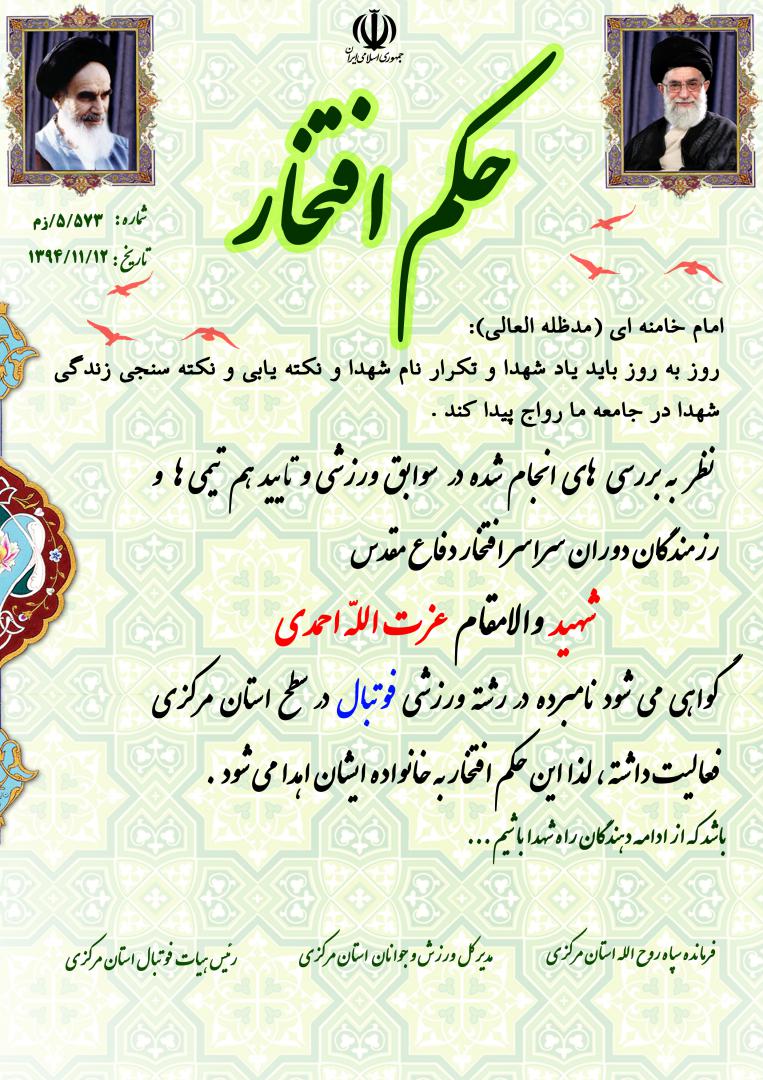 جمهوری اسلامی ایران
حکم افتخار
شماره: ۵/۵۷۳/زم
تاریخ: ۱۳۹۴/۱۱/۱۲
امام خامنه ای (مدظله العالی):
روز به روز باید یاد شهدا و تکرار نام شهدا و نکته یابی و نکته سنجی زندگی
شهدا در جامعه ما رواج پیدا کند .
نظر به بررسی های انجام شده در سوابق ورزشی و تایید هم تیمی ها و
رزمندگان دوران سراسر افتخار دفاع مقدس
شهید والامقام عزت اللّه احمدی
گواهی می شود نامبرده در رشته ورزشی فوتبال در سطح استان مرکزی
فعالیت داشته ، لذا این حکم افتخار به خانواده ایشان اهدا می شود .
باشد که از ادامه دهندگان راه شهدا باشیم ...
فرمانده سپاه روح الله استان مرکزی
مدیر کل ورزش و جوانان استان مرکزی
رئیس هیات فوتبال استان مرکزی